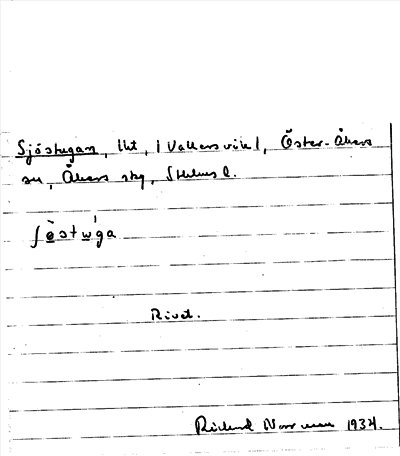 Sjöstugan, lht, (Vallersvik), Öster-Åkers
sn, Åkers skg, Sthlms l.
ʃö̀stẃga
Rivet.
Rickard Norrman 1934.